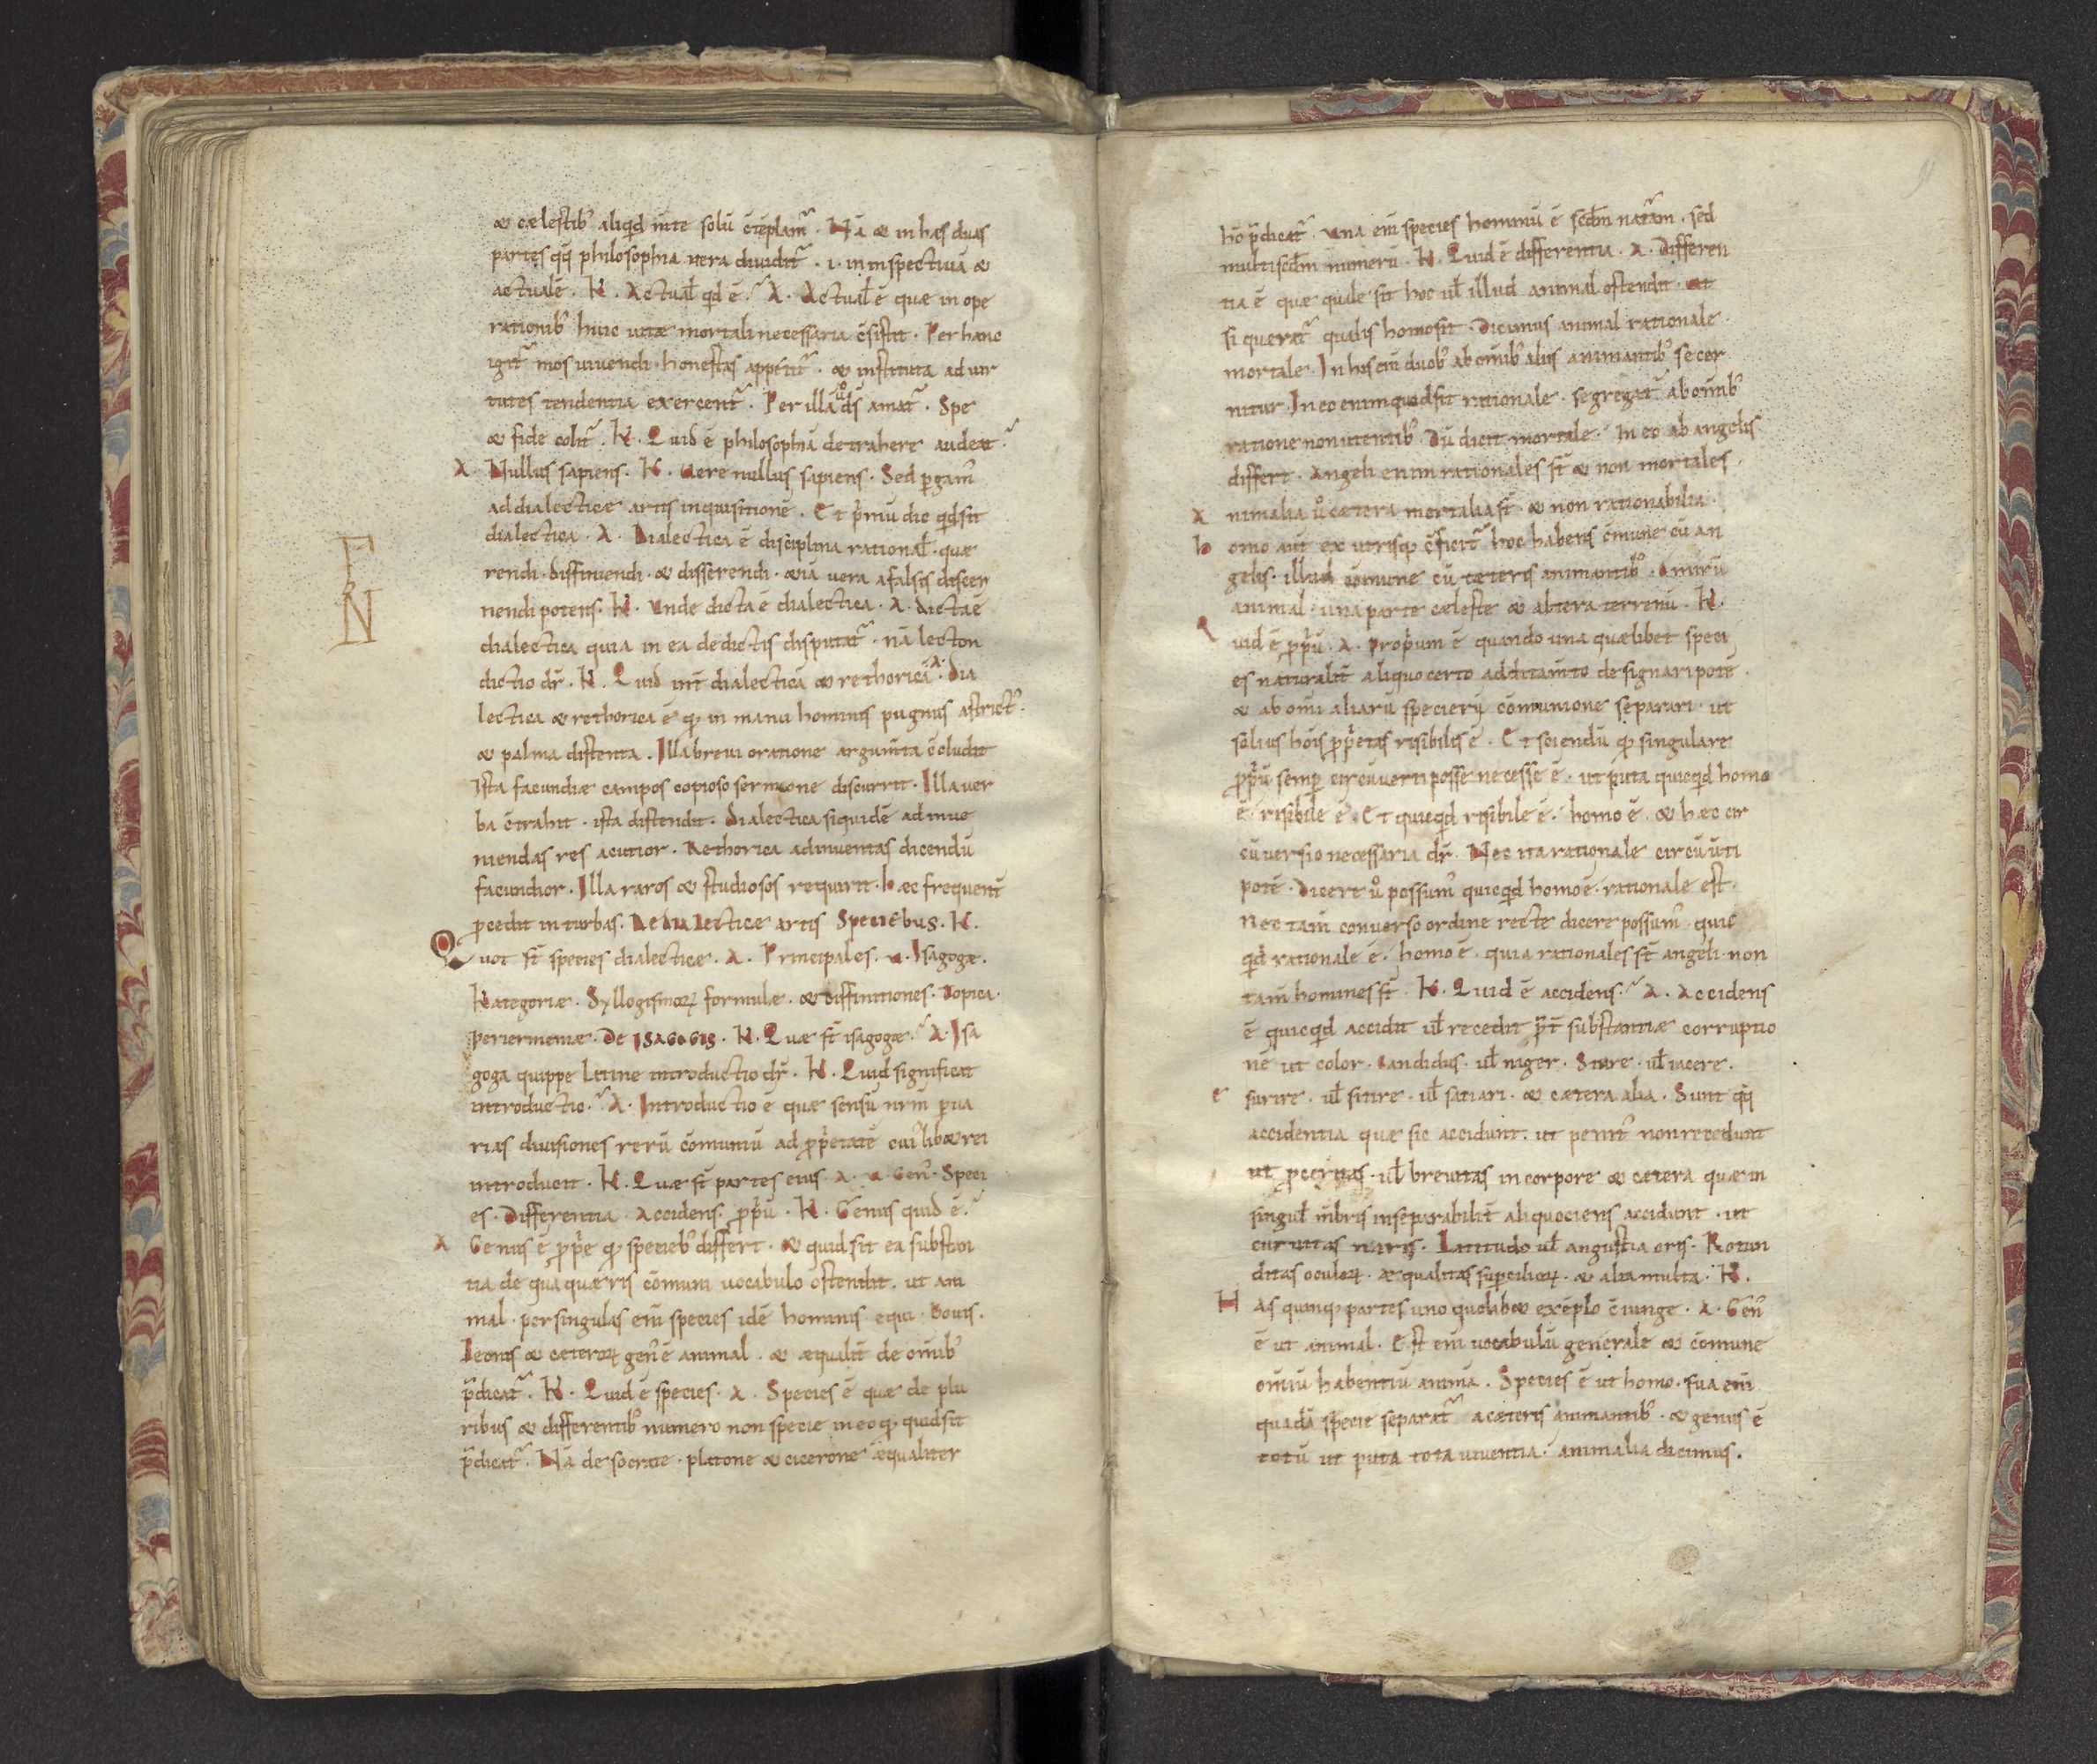 & cęlestib; aliqid m̄te solū c̄tēplam̃. Nā & in has duas
partes qq̄ philosophia uera diuidit̃ .i. in inspectiuā &
actualē. K. Actual̄ qid ē? A. Actual̄ ē quæ in ope
rationib; huic uitæ mortali necessaria c̄sistit. Per hanc
igit̃ mos uiuendi honestas appetit̃. & instituta ad uir
tutes tendentia exercent̃. Per illā ů dš amat̃. Spe
& fide colit̃. K. Quid ē philosophiā detrahere audeat?
A Nullus sapiens. K. Uere nullus sapiens. Sed pgam;
ad dialecticæ artis inquisitionē. Et p̄mū dic qid sit
dialectica. A. Dialectica ē disciplina rational̄. quæ
rendi. diffiniendi. & disserendi. &iā uera a falsis discer
nendi potens. K. Unde dicta ē dialectica. A. dicta ē
dialectica quia in ea de dictis disputat̃. nā lecton
dictio dr̄. K. Quid int̄ dialecticā & rethoricā. A. Dia
lectica & rethorica ē qđ in manu hominis pugnus astrict;
& palma distenta. Illa breui oratione argum̄ta c̄cludit
Ista facundiæ campos copioso sermone discurrit. Illa uer
ba c̄trahit. ista distendit. Dialectica siquidē ad inue
niendas res acutior. Rethorica ad inuentas dicendū
facundior. Illa raros & studiosos requirit. hæc frequent̄
pcedit in turbas. De dialecticæ artis speciebus. K.
Quot st̄ species dialecticæ. A. Principales. u. Isagogæ.
Kategoriæ. Syllogismoꝝ formulæ. & diffinitiones. Topica.
Periermeniæ. De isagogis. K. Quæ st̄ isagogæ? A. Isa
goga quippe latine introductio dr̄. K. Quid significat
introductio? A. Introductio ē quæ sensū nr̄m p ua
rias diuisiones rerū cōmuniū ad pp̄etatē cui;lib& rei
introducit. K. Quæ st̄ partes eius. A. u. Gen;. Speci
es. Differentia. Accidens. pp̄ū. K. Genus quid ē?
A Genus ē pp̄e qđ specieb; differt. & quid sit ea substan
tia de qua quæris cōmuni uocabulo ostendit. ut ani
mal. per singulas eni̅ species idē hominis equi. bouis.
Leonis & cæteroꝝ gen; ē animal. & æqualit̄ de om̄ib;
p̄dicat̃. K. Quid ē species. A. Species ē quæ de plu
ribus & differentib; numero non specie in eo qđ quid sit
p̄dicat̃. Nā de socrate. platone & cicerone æqualiter
hō p̄dicat̃. Una eni̅ species hominū ē scd̄m nat̃am. sed
multi scd̄m numerū. K. Quid ē differentia. A. Differen
tia ē quæ quale sit hoc ul̄ illud animal ostendit. ut
si querat̃ qualis homo sit. Dicimus animal rationale
mortale. In his eni̅ duob; ab om̄ib; aliis animantib; secer
nitur. In eo enim quod sit rationale. segregat̃ ab om̄ib;
ratione non utentib;. Dū dicit mortale. In eo ab angelis
differt. Angeli enim rationales st̄ & non mortales.
A nimalia ů cætera mortalia st̄ & non rationabilia.
h omo aut̄ ex utrisq; c̄ficit̃ hoc habens c̄mune cū an
gelis. illud cōmune cū cæteris animantib;. O mirū
animal. una parte cæleste & altera terrenū. K.
Q uid ē pp̄ū. A. Prop̄um ē quando una quælibet speci
es naturalit̄ aliquo certo addītam̄to designari potē.
& ab om̄i aliarū specierū cōmunione separari. ut
solius hōis pp̄etas risibilis ē. Et sciendū qđ singulare
pp̄ū semp circūuerti posse necesse ē. ut puta quicqid homo
ē. risibile ē. Et quicqid risibile ē. homo ē. & hæc cir
cūuersio necessaria dr̄. Nec ita rationale circūūti
potē. Dicere ů possum; quicqid homo ē. rationale est.
Nec tam̄ conuerso ordine recte dicere possum; quic
qid rationale ē. homo ē. quia rationales st̄ angeli. non
tam̄ homines st̄. K. Quid ē accidens? A. Accidens
ē quicqid accidit ul̄ recedit p̄t̄ substantiæ corruptio
nē ut color. Candidus. ul̄ niger. Stare. ul̄ iacere.
e surire. ul̄ sitire. ul̄ satiari. & cætera alia. Sunt qq̄
accidentia quæ sic accidunt. ut penit; non recedunt
ut pceritas. ul̄ breuitas in corpore & cetera quæ in
singul̄ m̄bris inseparabilit̄ aliquociens accidunt. ut
curuitas naris. Latitudo ul̄ angustia oris. Rotun
ditas oculoꝝ. æqualitas supcilioꝝ. & alia multa. K.
H As quinq; partes uno quolib& exēplo c̄iunge. A. Gen;
ē ut animal. Est eni̅ uocabulū generale & cōmune
om̄iū habentiū animā. Species ē ut homo. sua eni̅
quadā specie separat̃ a cæteris animantib;. & genus ē
totū ut puta tota uiuentia. animalia dicimus.